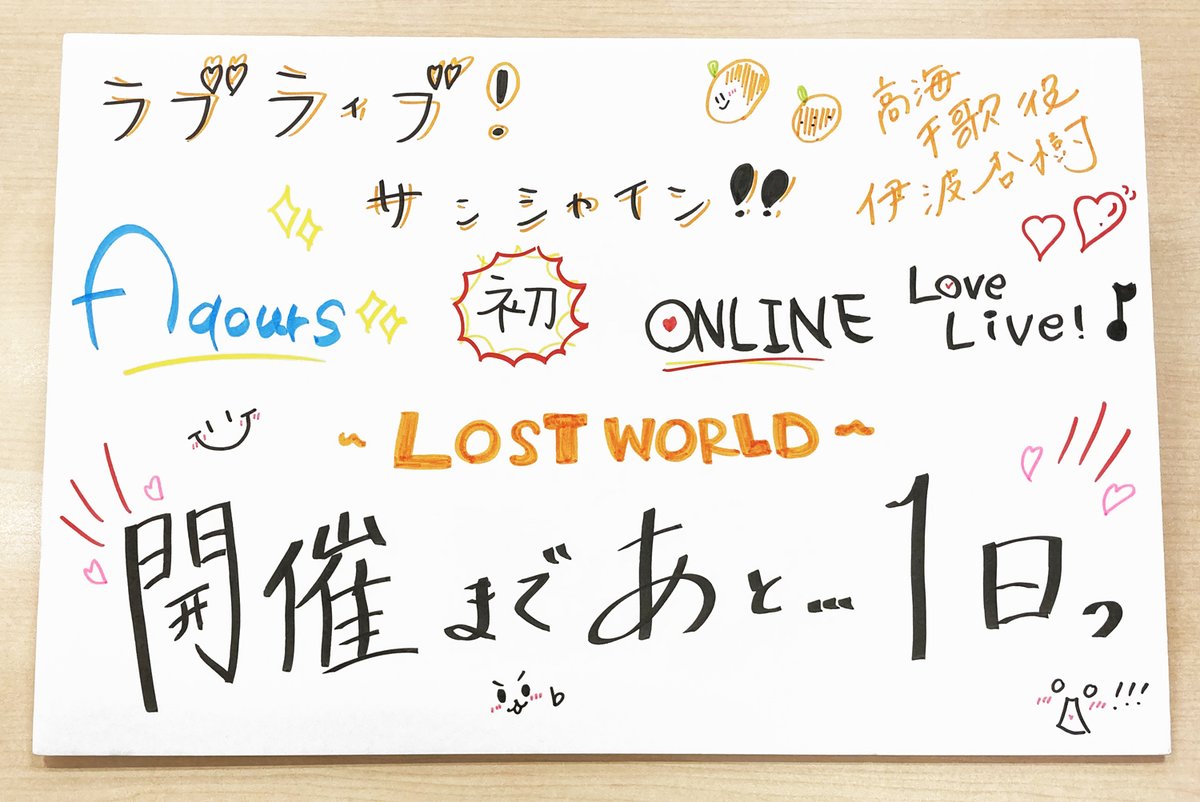 ラブライブ!
高海
千歌役
伊波杏樹
サンシャイン!!
Aqours
初
ONLINE
Love
Live!♪
~LOST WORLD~
開催まであと…1日っ
b
!!!